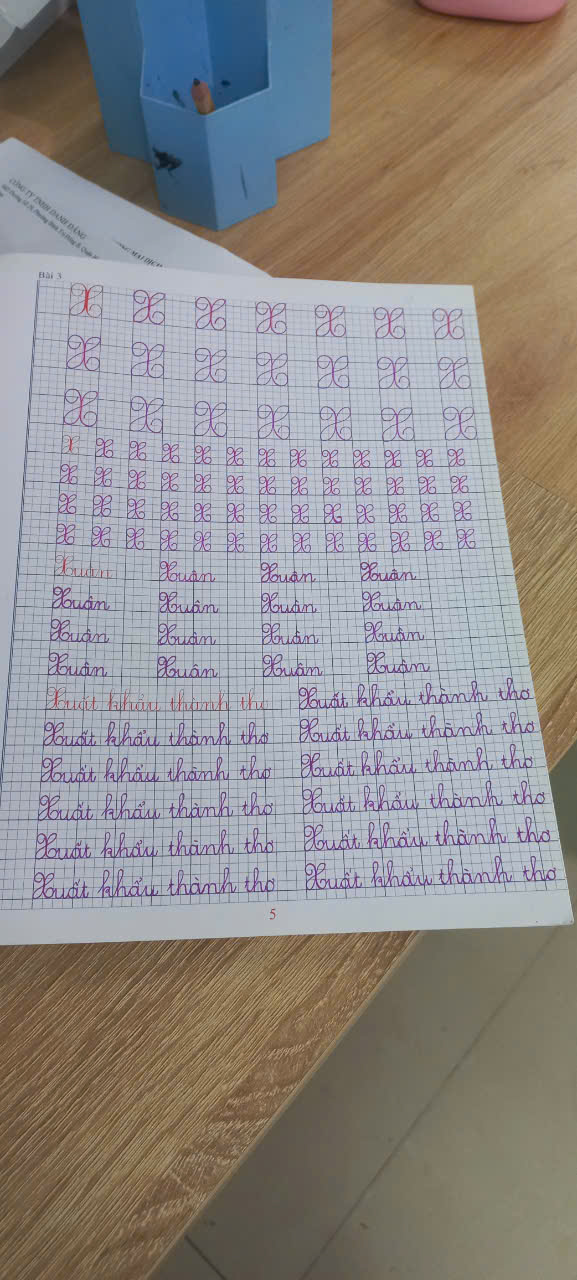 CÔNG TY TNHH DANH ĐẶNG
Bài 3
X X X X X X X
X X X X X X X
X X X X X X X
X X X X X X X X X X X X X
X X X X X X X X X X X X X
X X X X X X X X X X X X X
X X X X X X X X X X X X X
Xuân Xuân Xuân Xuân
Xuân Xuân Xuân Xuân
Xuân Xuân Xuân Xuân
Xuân Xuân Xuân Xuân
Xuất khẩu thành thơ Xuất khẩu thành thơ
Xuất khẩu thành thơ Xuất khẩu thành thơ
Xuất khẩu thành thơ Xuất khẩu thành thơ
Xuất khẩu thành thơ Xuất khẩu thành thơ
Xuất khẩu thành thơ Xuất khẩu thành thơ
Xuất khẩu thành thơ Xuất khẩu thành thơ
5